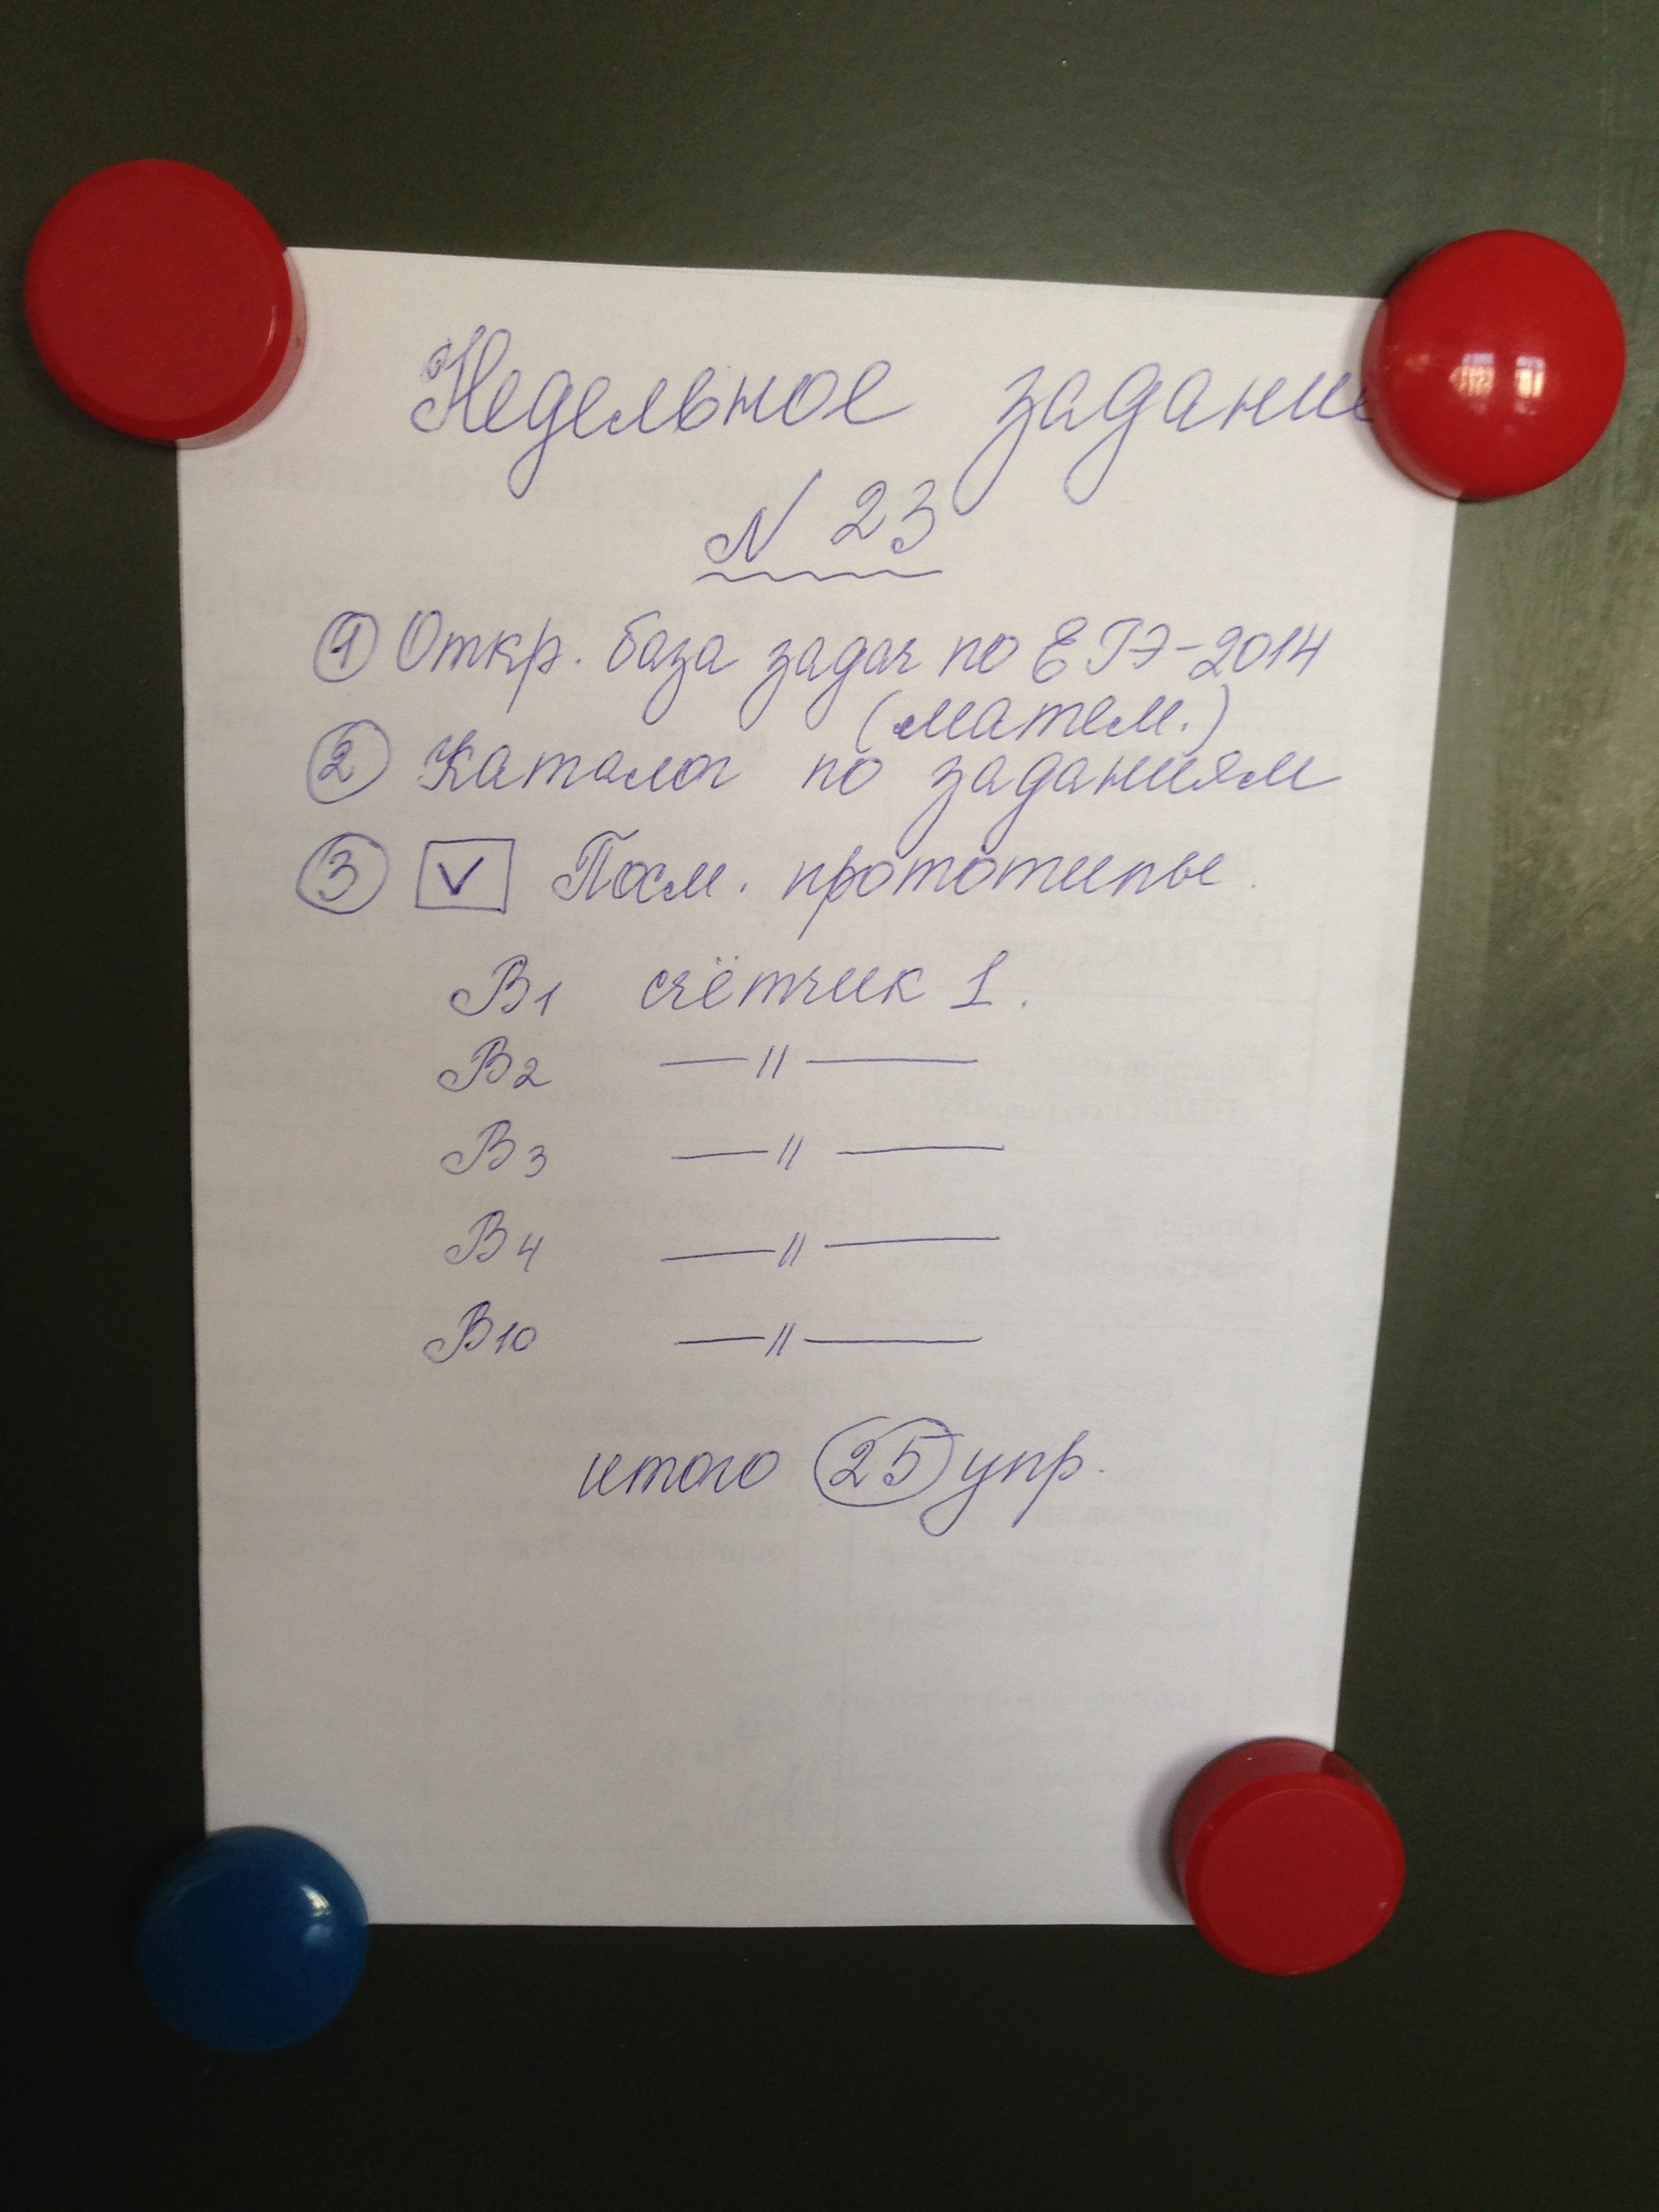 Недельное задание
N 23
1 Откр. база задач по ЕГЭ-2014
(матем.)
2 Каталог по заданиям
3 ✓ Посм. прототипы.
В1 счётчик 1.
В2 —〃—
В3 —〃—
В4 —〃—
В10 —〃—
итого 25 упр.